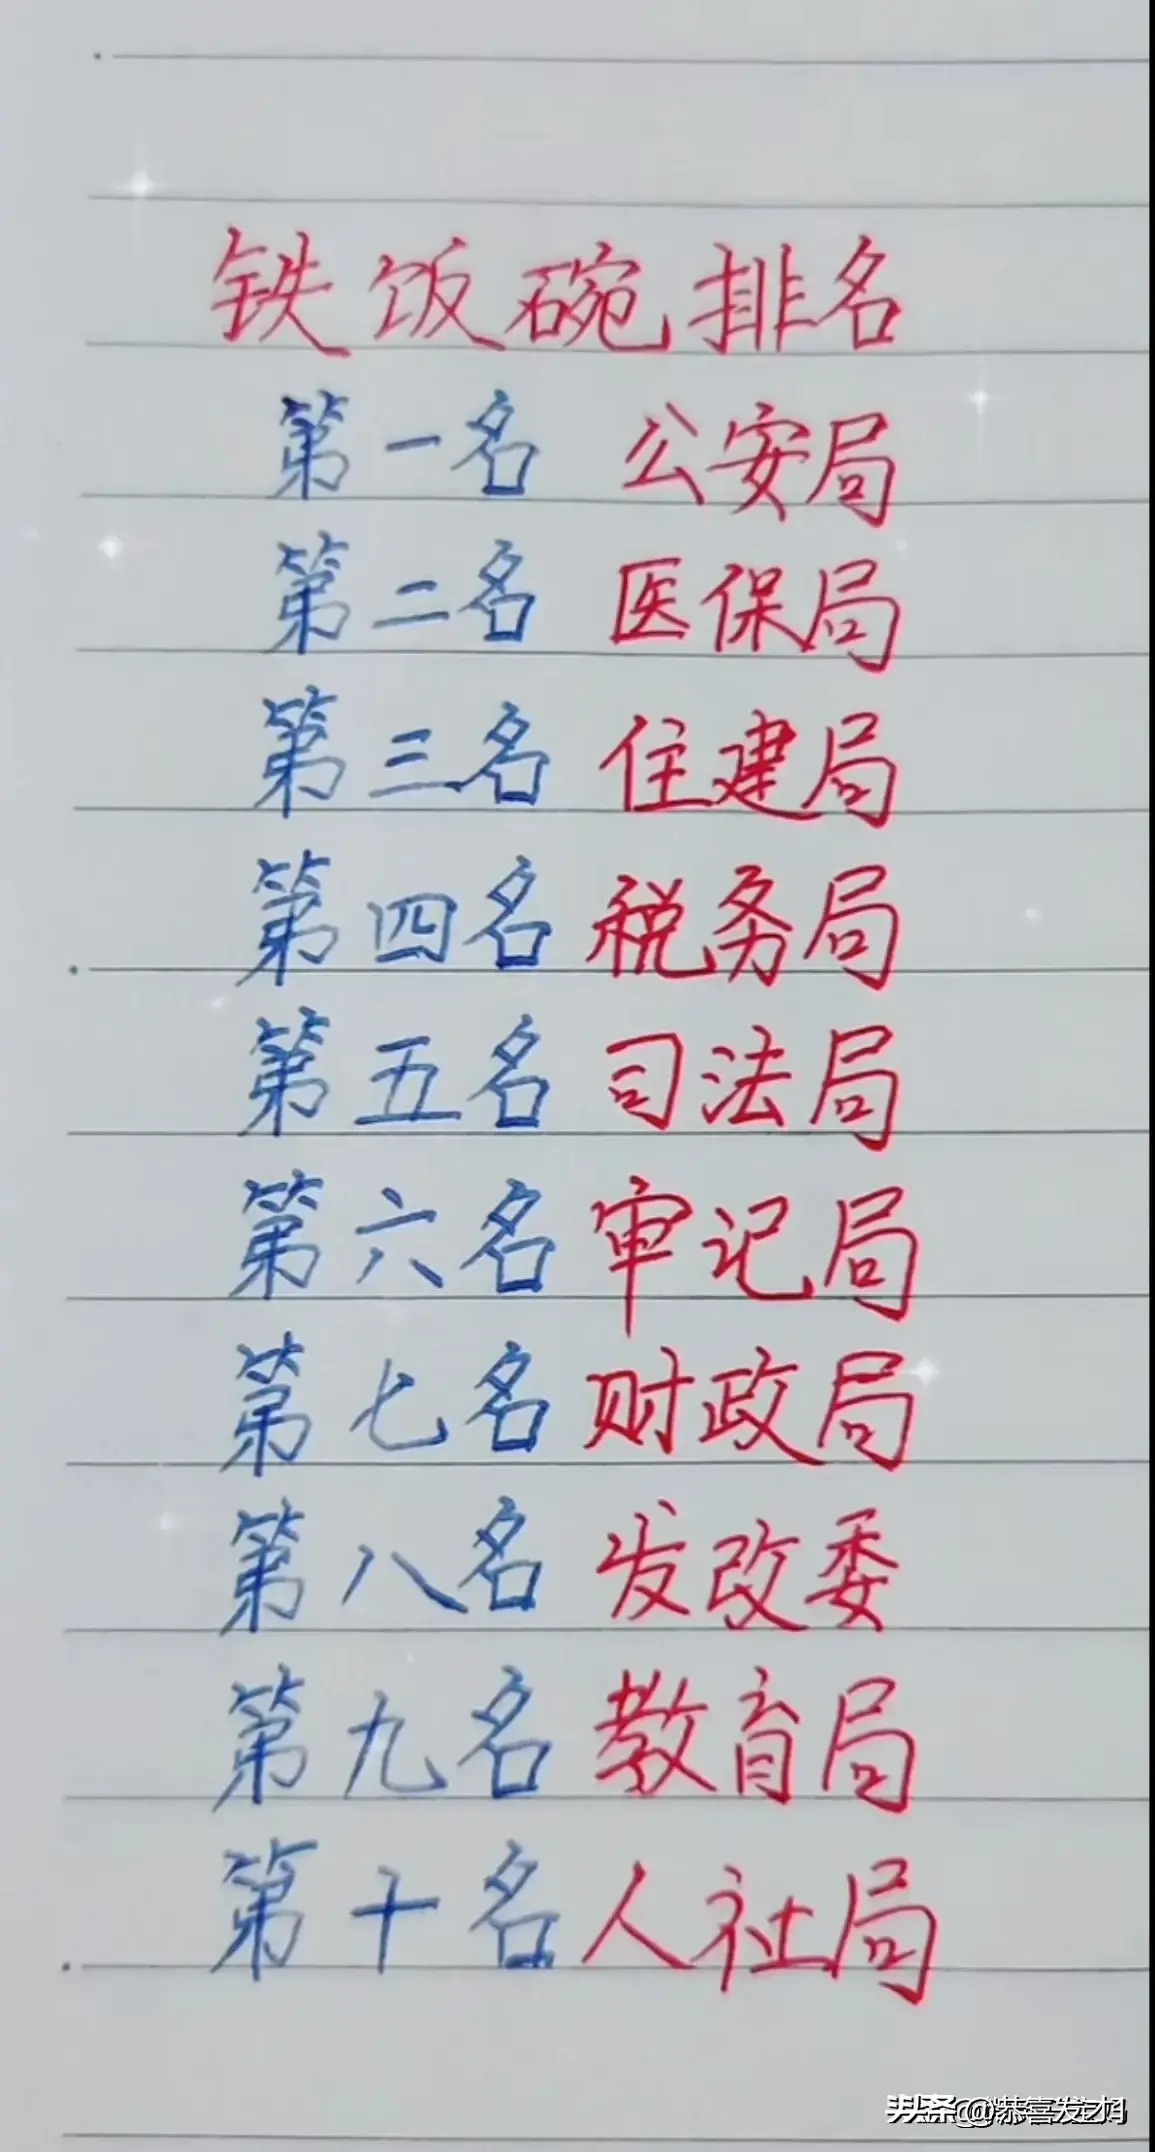 铁饭碗排名
第一名 公安局
第二名 医保局
第三名 住建局
第四名 税务局
第五名 司法局
第六名 审记局
第七名 财政局
第八名 发改委
第九名 教育局
第十名 人社局
头条 @